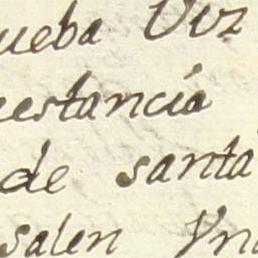 ueba Viz
cestancia
de santa
salen Yn